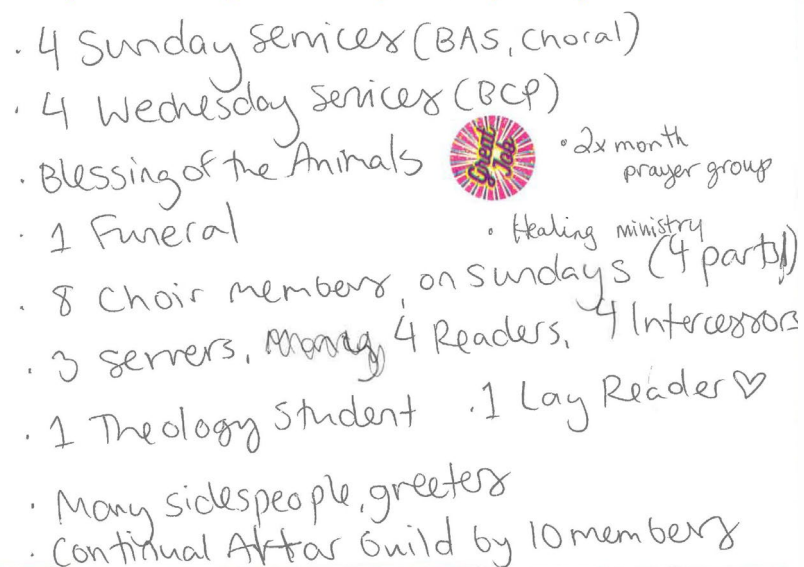 · 4 Sunday Services (BAS, Choral)
· 4 Wednesday Services (BCP)
· Blessing of the Animals
Great
Job
· 2x month
prayer group
· 1 Funeral
· Healing ministry
· 8 Choir members, on Sundays (4 parts!)
· 3 Servers, 4 Readers, 4 Intercessors
· 1 Theology Student
· 1 Lay Reader ♡
· Many sidespeople, greeters
· Continual Altar Guild by 10 members